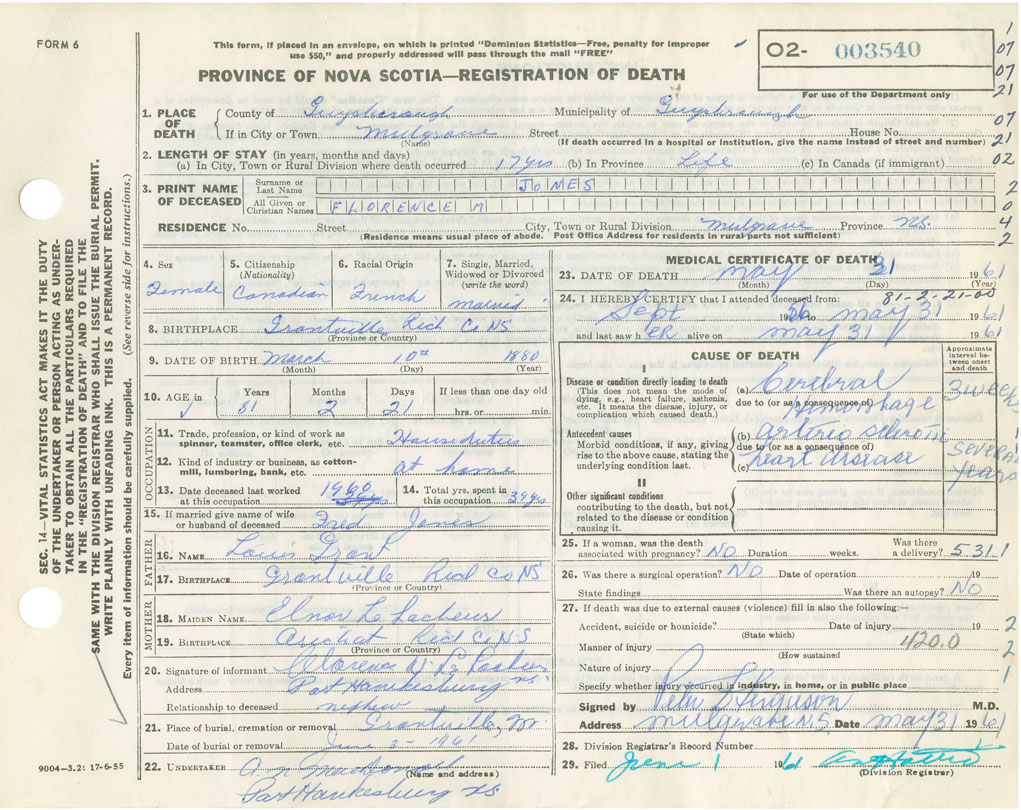 FORM 6
This form, if placed in an envelope, on which is printed "Dominion Statistics—Free, penalty for improper
use $50," and properly addressed will pass through the mail "FREE"
02- 003540
PROVINCE OF NOVA SCOTIA—REGISTRATION OF DEATH
For use of the Department only
1. PLACE OF DEATH
County of Guysborough Municipality of Guysbrough
If in City or Town Mulgrave Street House No.
(Name) (If death occurred in a hospital or institution, give the name instead of street and number)
2. LENGTH OF STAY (in years, months and days)
(a) In City, Town or Rural Division where death occurred 17 yrs (b) In Province Life (c) In Canada (if immigrant)
3. PRINT NAME OF DECEASED
Surname or Last Name JONES
All Given or Christian Names FLORENCE M
RESIDENCE No. Street City, Town or Rural Division Mulgrave Province N.S.
(Residence means usual place of abode. Post Office Address for residents in rural parts not sufficient)
4. Sex Female
5. Citizenship (Nationality) Canadian
6. Racial Origin French
7. Single, Married, Widowed or Divorced (write the word) Married
8. BIRTHPLACE Grantville Rich Co NS
(Province or Country)
9. DATE OF BIRTH March 10th 1880
(Month) (Day) (Year)
10. AGE in Years Months Days If less than one day old
81 2 21 hrs. or min.
OCCUPATION
11. Trade, profession, or kind of work as spinner, teamster, office clerk, etc. Houseduties
12. Kind of industry or business, as cotton-mill, lumbering, bank, etc. at home
13. Date deceased last worked at this occupation 1960
14. Total yrs. spent in this occupation 39 yrs
15. If married give name of wife or husband of deceased Fred Jones
FATHER
16. NAME Louis Grant
17. BIRTHPLACE Grantville Rich Co NS
(Province or Country)
MOTHER
18. MAIDEN NAME
19. BIRTHPLACE Arichat Rich Co N.S
(Province or Country)
20. Signature of informant
Address Port Hawkesbury NS.
Relationship to deceased nephew
21. Place of burial, cremation or removal Grantville,
Date of burial or removal June 3 - 1961
22. UNDERTAKER
(Name and address)
Port Hawkesbury NS
9004-3.2: 17-6-55
MEDICAL CERTIFICATE OF DEATH
23. DATE OF DEATH May 31 1961
(Month) (Day) (Year)
81-2-21-00
24. I HEREBY CERTIFY that I attended deceased from:
Sept 1956 to May 31 1961
and last saw hER alive on May 31 1961
CAUSE OF DEATH
Approximate interval between onset and death
I
Disease or condition directly leading to death
(This does not mean the mode of dying, e.g., heart failure, asthenia, etc. It means the disease, injury, or complication which caused death.)
(a) Cerebral 3 weeks
due to (or as a consequence of)
Hemorrhage
Antecedent causes
Morbid conditions, if any, giving rise to the above cause, stating the underlying condition last.
(b) arterio sclerotic several years
due to (or as a consequence of)
(c) heart disease
II
Other significant conditions
contributing to the death, but not related to the disease or condition causing it.
25. If a woman, was the death associated with pregnancy? NO Duration weeks. Was there a delivery? 5311
26. Was there a surgical operation? NO Date of operation 19
State findings Was there an autopsy? NO
27. If death was due to external causes (violence) fill in also the following:—
Accident, suicide or homicide? Date of injury 19
(State which)
Manner of injury 420.0
(How sustained
Nature of injury
Specify whether injury occurred in industry, in home, or in public place
Signed by Ferguson M.D.
Address Mulgrave N.S. Date May 31 1961
28. Division Registrar's Record Number
29. Filed June 1 1961
(Division Registrar)
SEC. 14—VITAL STATISTICS ACT MAKES IT THE DUTY
OF THE UNDERTAKER OR PERSON ACTING AS UNDER-
TAKER TO OBTAIN ALL THE PARTICULARS REQUIRED
IN THE "REGISTRATION OF DEATH" AND TO FILE THE
SAME WITH THE DIVISION REGISTRAR WHO SHALL ISSUE THE BURIAL PERMIT.
WRITE PLAINLY WITH UNFADING INK. THIS IS A PERMANENT RECORD.
Every item of information should be carefully supplied. (See reverse side for instructions.)
1
07
07
21
07
21
02
2
0
4
2
1
2
2
1